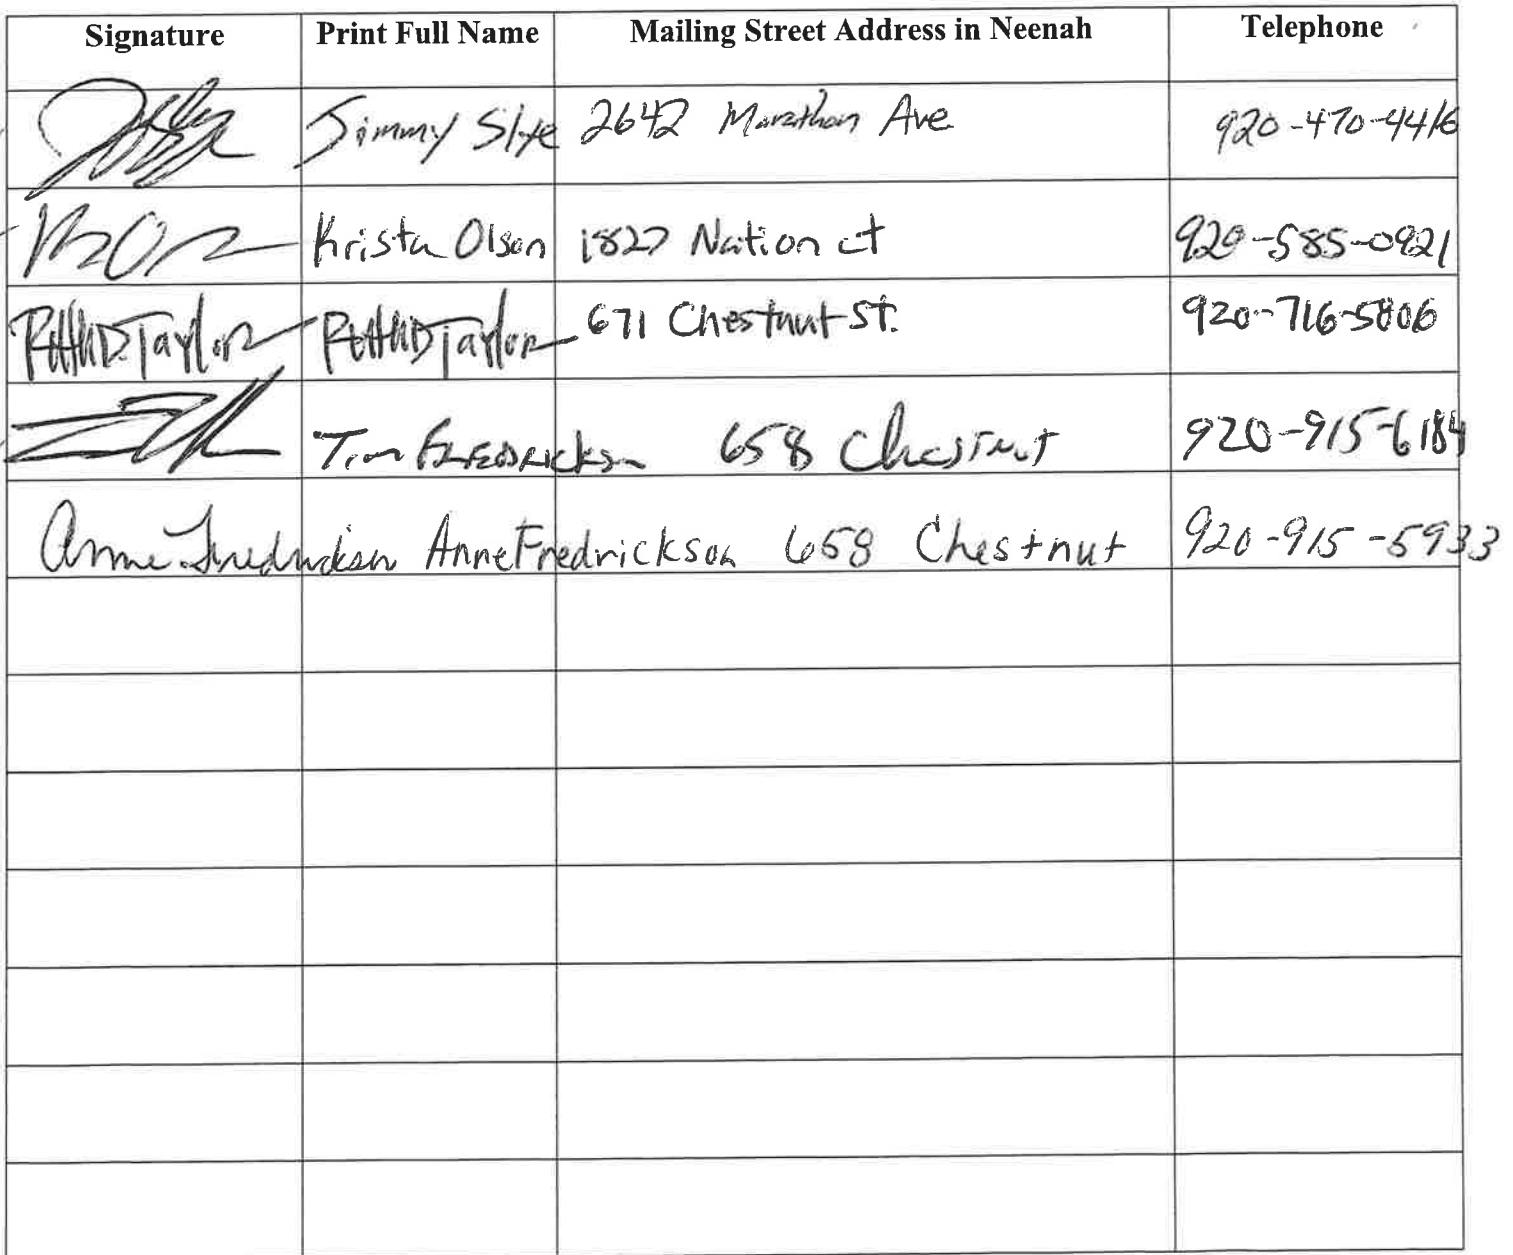 Signature Print Full Name Mailing Street Address in Neenah Telephone
Jimmy Slye 2642 Marathon Ave 920-470-4416
Krista Olson 1827 Nation ct 920-585-0921
Taylor Taylor 671 Chestnut St. 920-716-5806
Tim FREDRICKSON 658 Chestnut 920-915-6184
Anne Fredrickson Anne Fredrickson 658 Chestnut 920-915-5933